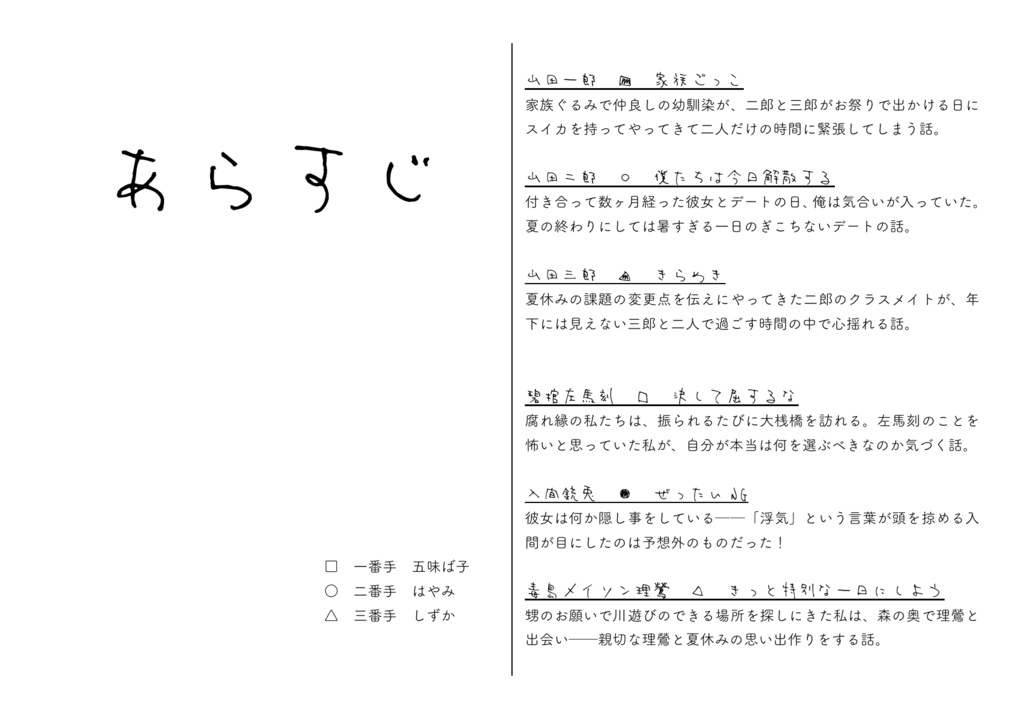 あらすじ
□　一番手　五味ば子
○　二番手　はやみ
△　三番手　しずか
山田一郎　■　家族ごっこ
家族ぐるみで仲良しの幼馴染が、二郎と三郎がお祭りで出かける日に
スイカを持ってやってきて二人だけの時間に緊張してしまう話。
山田二郎　○　僕たちは今日解散する
付き合って数ヶ月経った彼女とデートの日、俺は気合いが入っていた。
夏の終わりにしては暑すぎる一日のぎこちないデートの話。
山田三郎　▲　きらめき
夏休みの課題の変更点を伝えにやってきた二郎のクラスメイトが、年
下には見えない三郎と二人で過ごす時間の中で心揺れる話。
碧棺左馬刻　□　決して屈するな
腐れ縁の私たちは、振られるたびに大桟橋を訪れる。左馬刻のことを
怖いと思っていた私が、自分が本当は何を選ぶべきなのか気づく話。
入間銃兎　●　ぜったいNG
彼女は何か隠し事をしている――「浮気」という言葉が頭を掠める入
間が目にしたのは予想外のものだった！
毒島メイソン理鶯　△　きっと特別な一日にしよう
甥のお願いで川遊びのできる場所を探しにきた私は、森の奥で理鶯と
出会い――親切な理鶯と夏休みの思い出作りをする話。